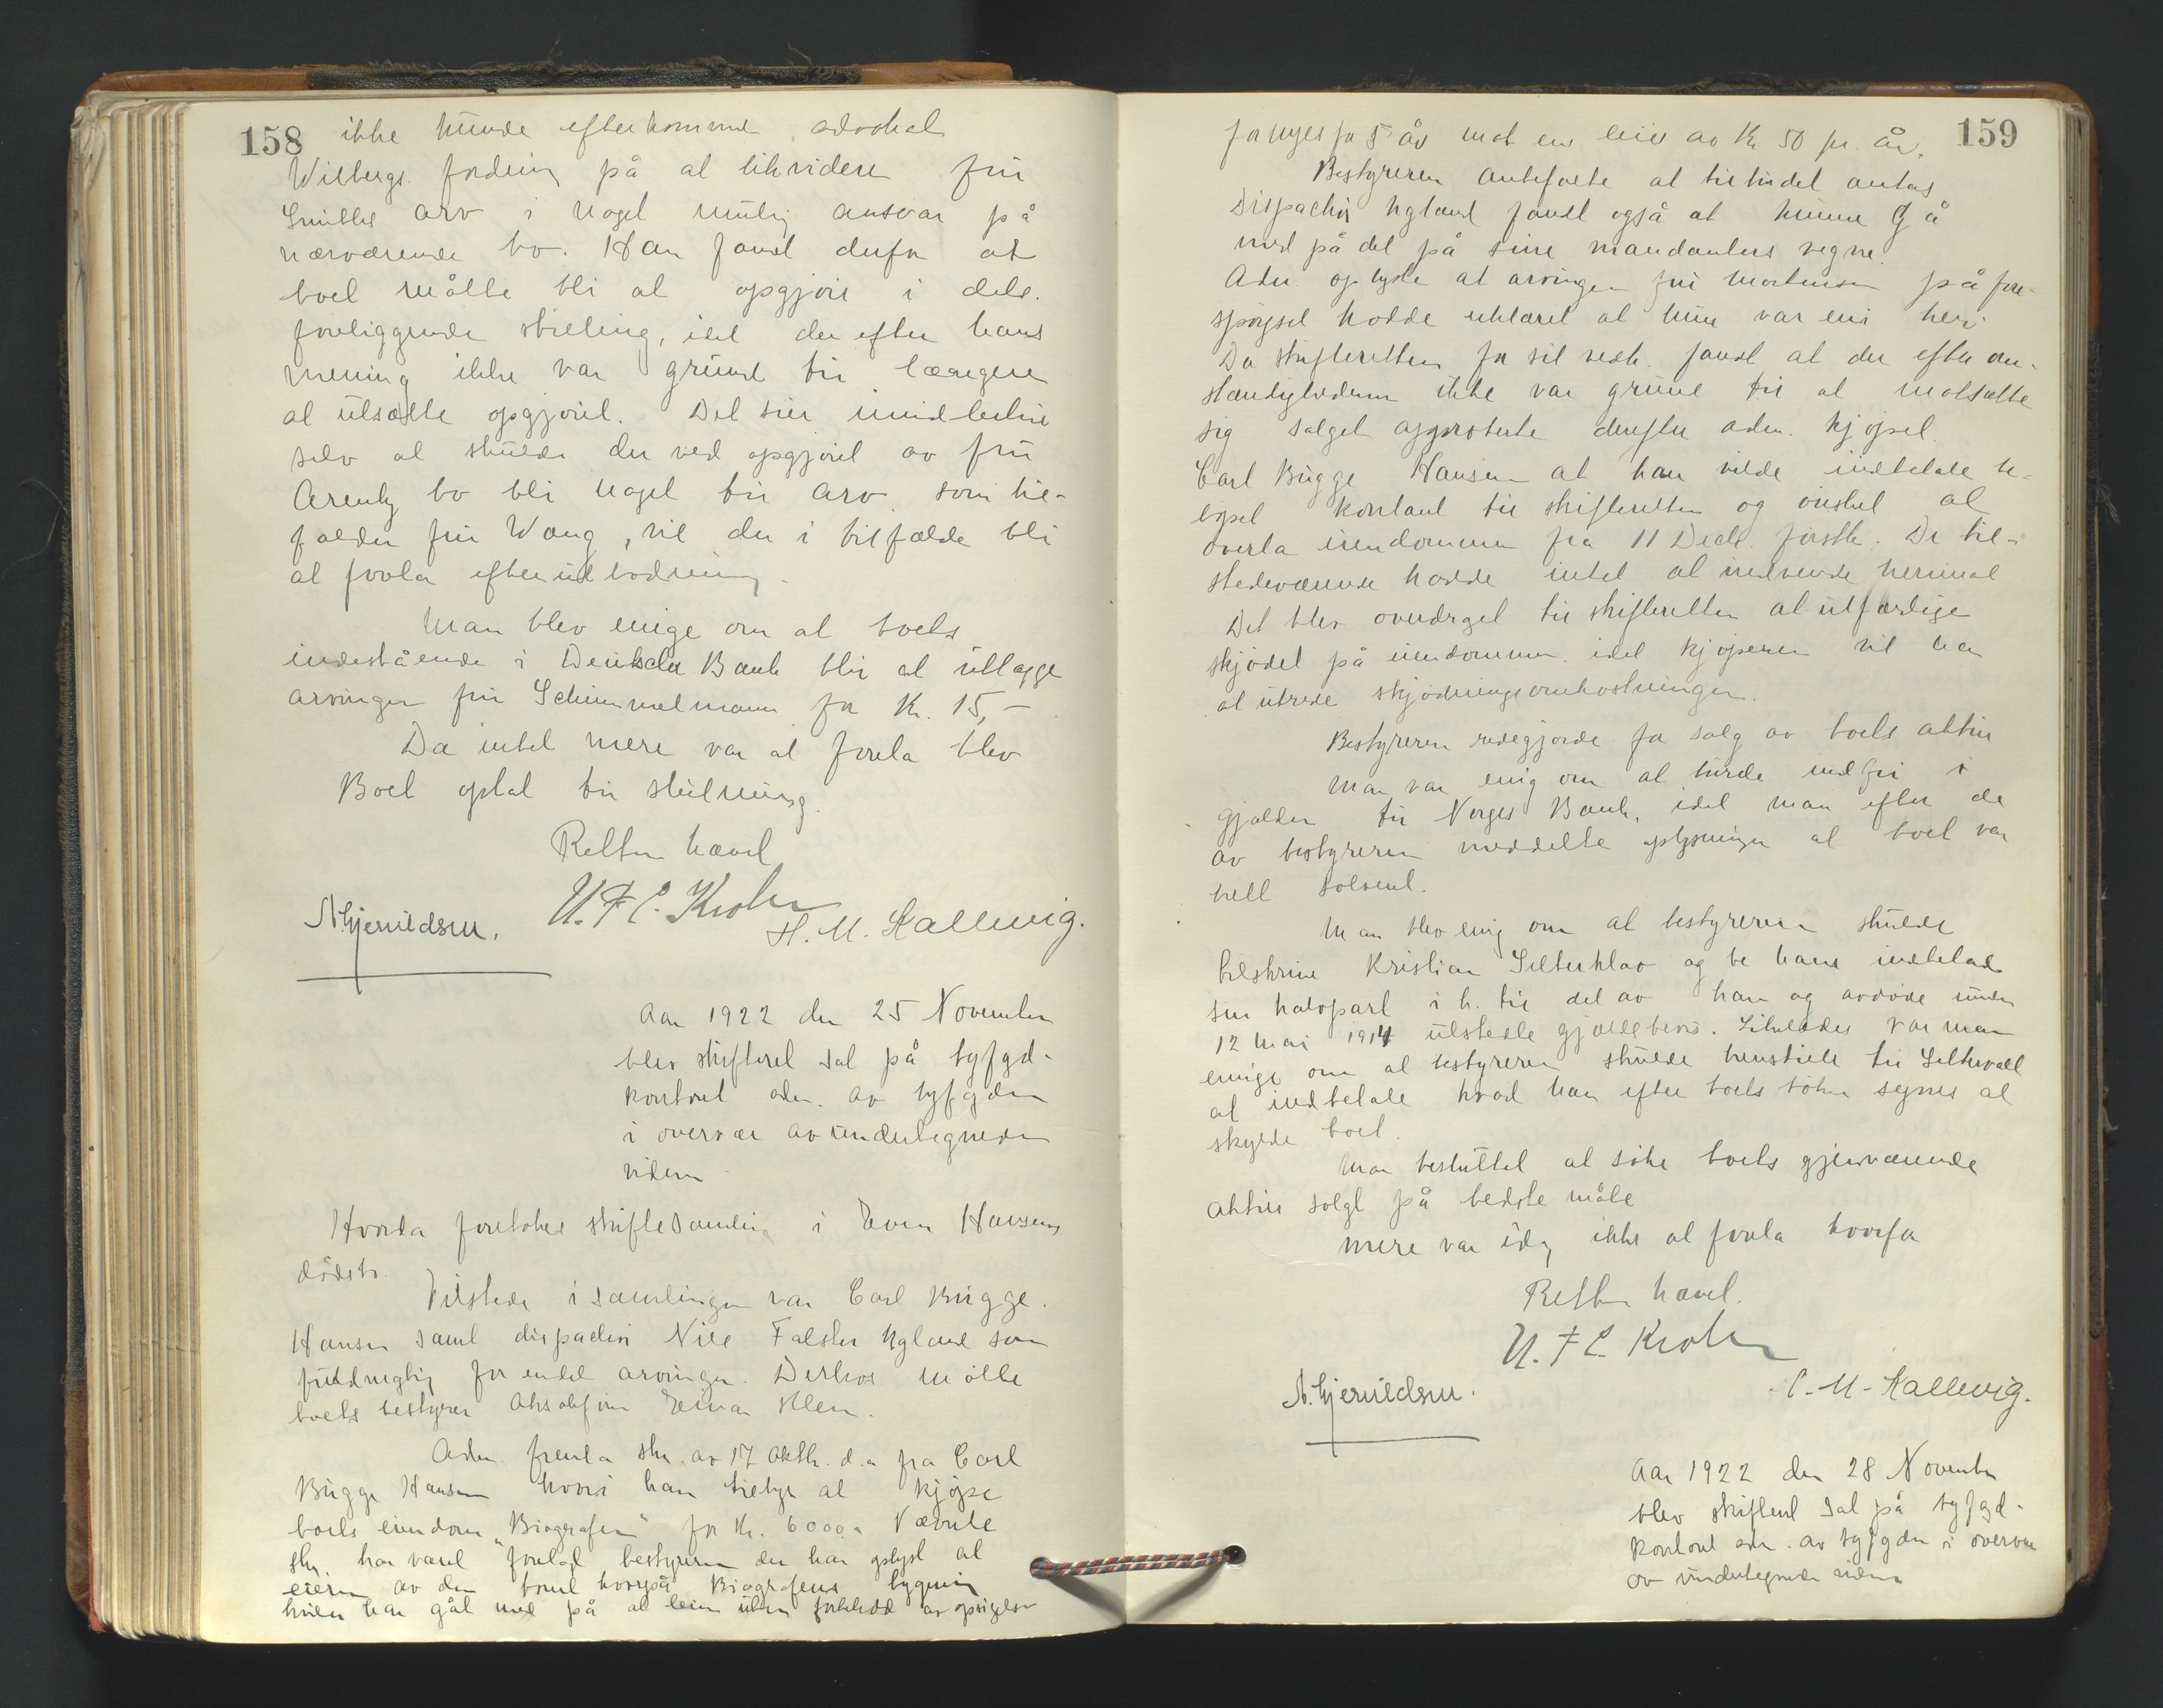 158
ikke kunde efterkomme advokat
Wilbergs fordring på at likvidere fru
Smiths arv i noget mulig ansvar på
nærværende bo. Han fandt derfor at
boet måtte bli at opgjøre i dets
foreliggende stilling, idet der efter hans
mening ikke var grund til længere
at utsætte opgjøret. Det sier imidlertid
selv at skulde der ved opgjøret av fru
Arentz bo bli noget til arv som til-
falder fru Wang, vil der i tilfælde bli
at forta efterutlodning.
Man blev enige om at boets
indestående i Deutsche Bank blir at utlægge
arvingen fru Schimmelmann for Kr. 15,-
Da intet mere var at foreta blev
Boet optat til slutning.
Retten hævet
N. Hjermildsen. U. F. C. Krohn H. M. Hallwig.
Aar 1922 den 25 November
blev skifteret sat på byfgd-
kontoret adm. av byfgden
i overvær av undertegnede
vidner
Hvorda foretokes skiftesamling i Even Hansens
dødsbo.
Tilstede i samlingen var Carl Bugge
Hansen samt dispachør Nils Falster Ugland som
fuldmægtig for endel arvinger. Derhos møtte
boets bestyrer Einar
Adm. fremla skr. av 17 oktbr. d.a fra Carl
Bugge Hansen hvori han tilbyr at kjøpe
boets eiendom "Biografen" for Kr. 6000. Nævnte
skr. har været forelagt bestyreren der har oplyst at
eieren av den tomt hvorpå Biografens bygning
hviler har gåt med på at leien uten forbehold av opsigelse
159
fornyes for 5 år mot en leie av Kr 50 pr. år.
Bestyreren anbefalte at tilbudet antas
Dispachør Ugland fandt også at kunne gå
med på det på sine mandanters vegne.
Adm. oplyste at arvingen fru Mortensen på fore-
spørgsel hadde erklæret at hun var eni heri
Da skifteretten for sit vedk. fandt at der efter om-
stændighederne ikke var grund til at motsætte
sig salget approberte derefter adm. kjøpet.
Carl Bugge Hansen at han vilde indbetale be-
løpet kontant til skifteretten og ønsket at
overta eiendommen fra 11 Decbr. førstk. De til-
stedeværende hadde intet at indvende herimot
Det blev overdraget til skifteretten at utfærdige
skjødet på eiendommen idet kjøperen vil ha
at utrede skjødningsomkostningen.
Bestyreren redegjorde for salg av boets aktiv
Man var enig om at burde indfri
gjælden til Norges Bank, idet man efter de
av bestyreren meddelte oplysninger at boet var
helt solvent.
Man blev enig om at bestyreren skulde
tilskrive Kristian og be ham indbetale
sin halvpart i h. til det av ham og avdøde under
12 mai 1914 utstedte gjældsbevis. Likeledes var man
enige om at bestyreren skulde henstille til
at indbetale hvad han efter boets bøker synes at
skylde boet.
Man besluttet at søke boets gjenværende
aktiv solgt på bedste måte
Mere var idag ikke at foreta hvorfor
Retten hævet.
U. F. C. Krohn
N. Hjermildsen. C. M. Hallwig.
Aar 1922 den 28 November
blev skifteret sat på byfgd-
kontoret adm. av byfgden i overvær
av undertegnede vidner